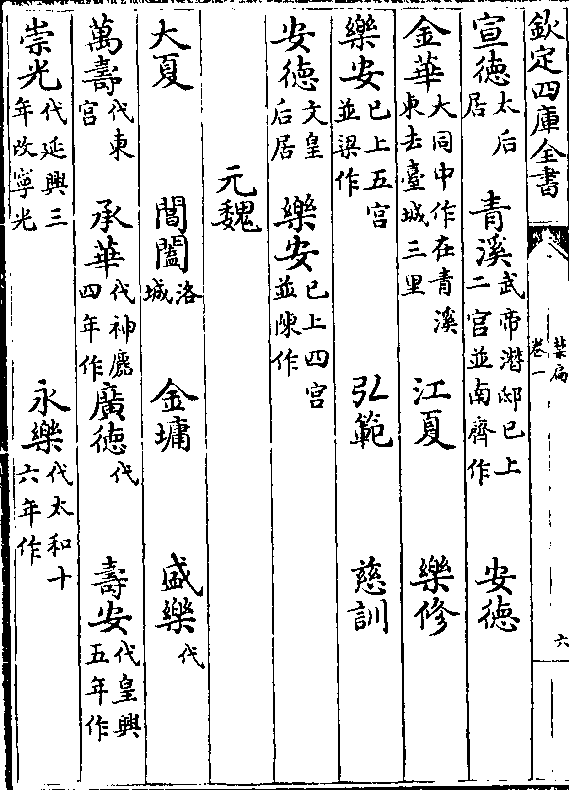 欽定四庫全書
禁扁
卷一
六
宣德太后居 青溪武帝潛邸已上二宮並南齊作 安德
金華大同中作在青溪東去臺城三里 江夏 樂修
樂安已上五宮並梁作 弘範 慈訓
安德文皇后居 樂安已上四宮並陳作
元魏
大夏 閶闔洛城 金墉 盛樂代
萬壽代東宮 承華代神䴥四年作 廣德代 壽安代皇興五年作
崇光代延興三年改寧光 永樂代太和十六年作